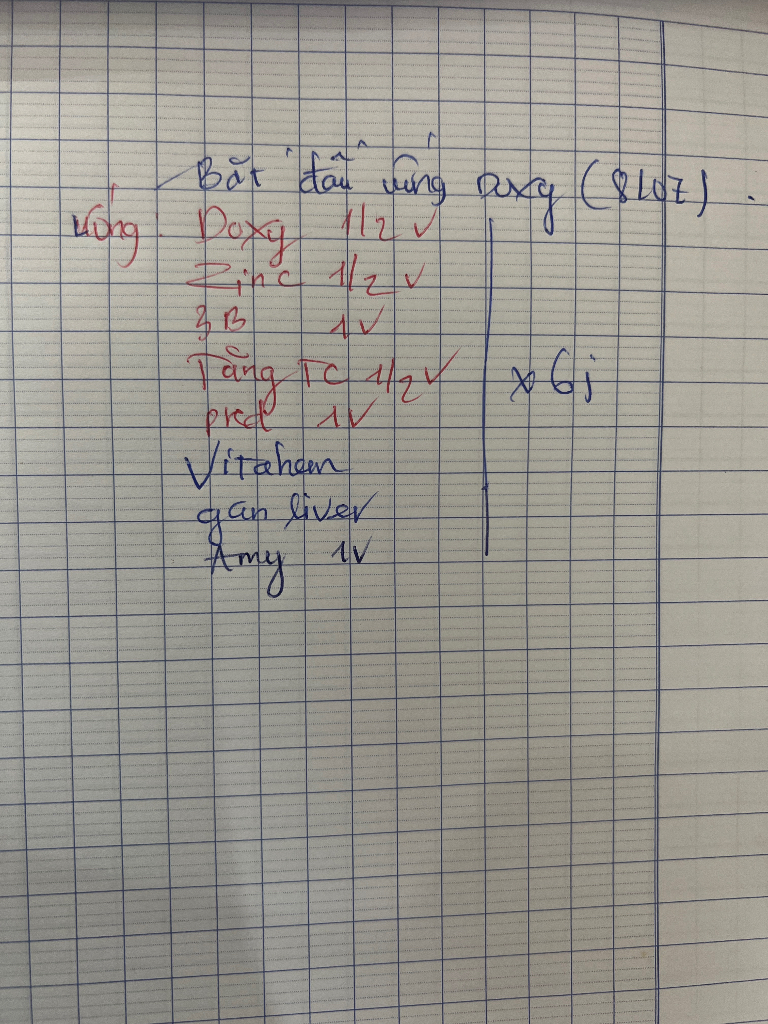 Bắt đầu uống Doxy (8/07).
uống: Doxy 1/2 v
Zinc 1/2 v
3B 1v
Tăng TC 1/2 v
pred 1v
x 6j
Vitahem
gan liver
Amy 1v